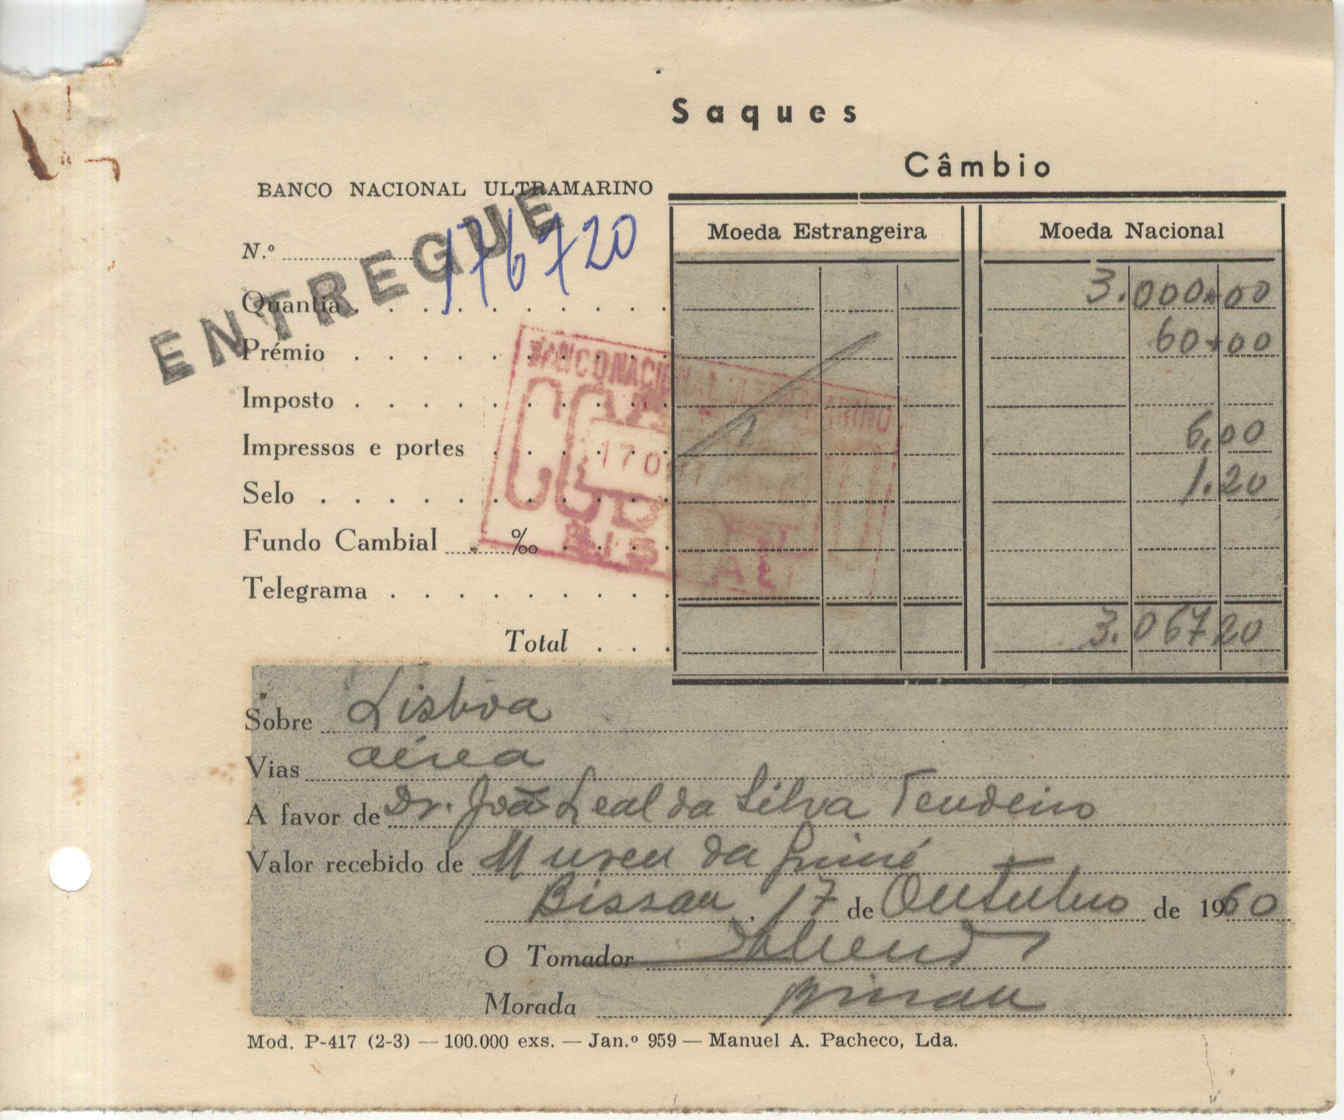 Saques
Câmbio
BANCO NACIONAL ULTRAMARINO
Moeda Estrangeira Moeda Nacional
ENTREGUE
N.º 176720
Quantia 3.000,00
Prémio 60,00
BANCO NACIONAL ULTRAMARINO
Imposto
Impressos e portes 6,00
17 OUT
Selo 1.20
Fundo Cambial ‰
BISSAU
Telegrama
Total 3.067 20
Sobre Lisboa
Vias aérea
A favor de Dr. João Leal da Silva Tendeiro
Valor recebido de Museu da Guiné
Bissau, 17 de Outubro de 1960
O Tomador
Morada Bissau
Mod. P-417 (2-3) — 100.000 exs. — Jan.º 959 — Manuel A. Pacheco, Lda.